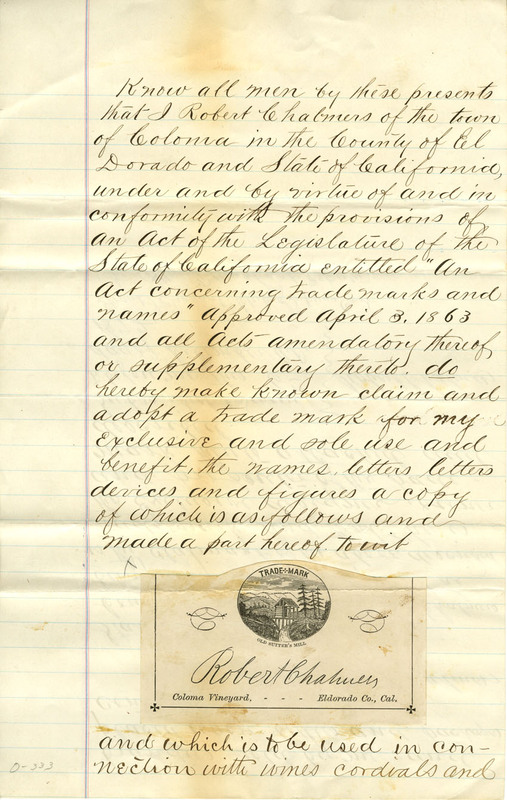 Know all men by these presents
that I Robert Chalmers of the town
of Coloma in the County of El
Dorado and State of California,
under and by virtue of and in
conformity with the provisions of
an Act of the Legislature of the
State of California entitled "An
Act concerning trade marks and
names" approved April 3, 1863
and all Acts amendatory thereof
or supplementary thereto. do
hereby make known claim and
adopt a trade mark for my
exclusive and sole use and
benefit, the names, letters, letters
devices and figures a copy
of which is as follows and
made a part hereof. to wit
TRADE-MARK
OLD SUTTER'S MILL
Robert Chalmers
Coloma Vineyard, - - - Eldorado Co., Cal.
and which is to be used in con-
nection with wines cordials and
0-333